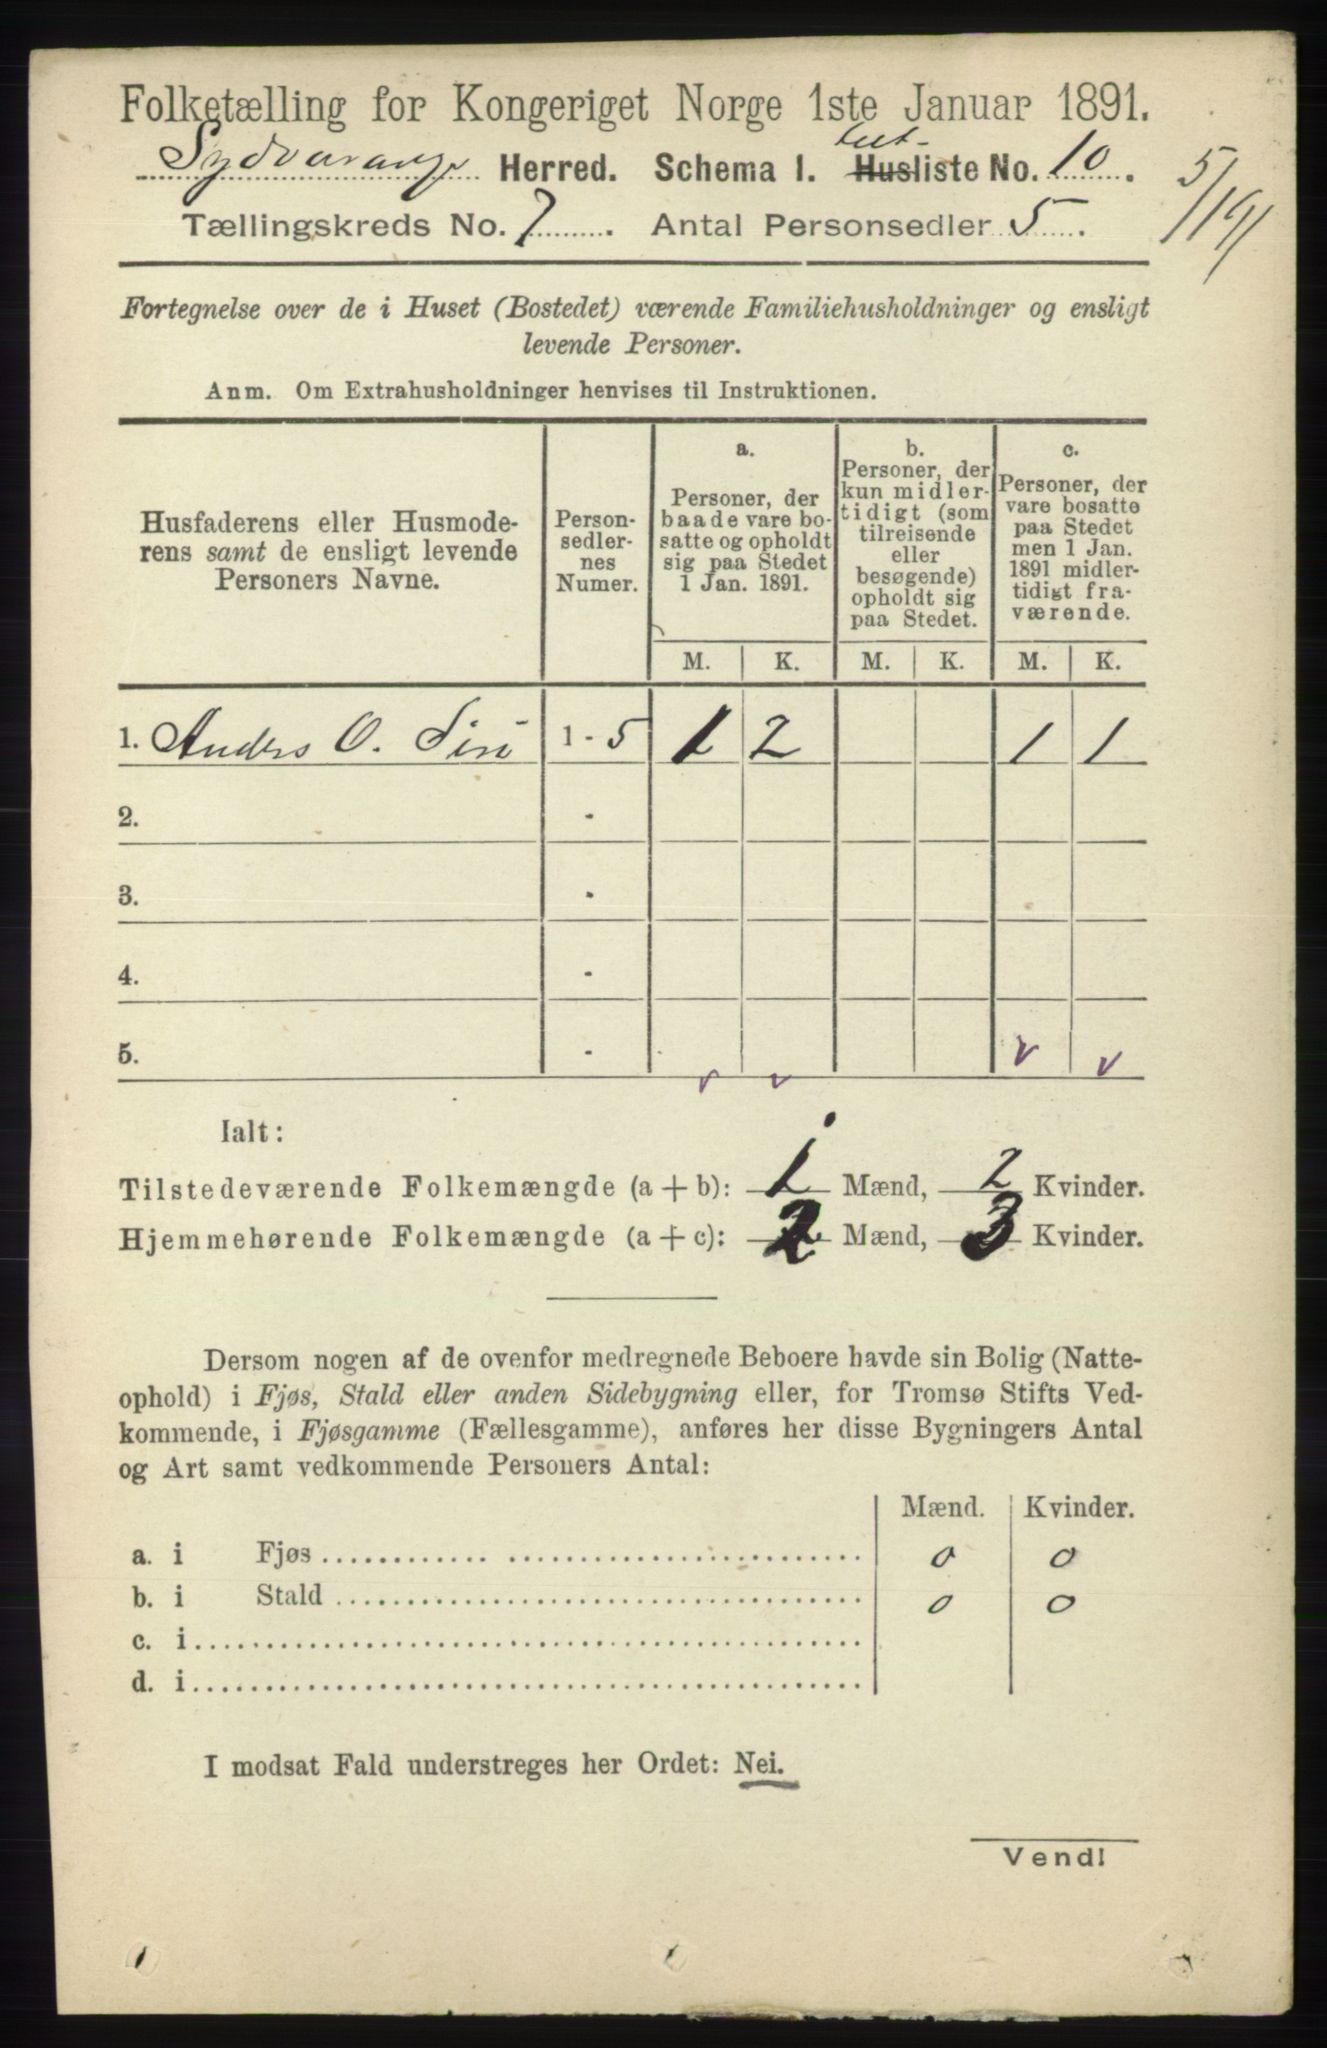 Folketælling for Kongeriget Norge 1ste Januar 1891.
Sydvarange Herred. Schema 1. Husliste No. 10.
Tællingskreds No. 7. Antal Personsedler 5.
Fortegnelse over de i Huset (Bostedet) værende Familiehusholdninger og ensligt
levende Personer.
Anm. Om Extrahusholdninger henvises til Instruktionen.
Husfaderens eller Husmode-
rens samt de ensligt levende
Personers Navne.
Person-
sedler-
nes
Numer.
a.
Personer, der
baade vare bo-
satte og opholdt
sig paa Stedet
1 Jan. 1891.
b.
Personer, der
kun midler-
tidigt (som
tilreisende
eller
besøgende)
opholdt sig
paa Stedet.
c.
Personer, der
vare bosatte
paa Stedet
men 1 Jan.
1891 midler-
tidigt fra-
værende.
M. K. M. K. M. K.
1. Anders O. Siri 1 - 5 1 2 1 1
2. -
3. -
4. -
5. -
Ialt:
Tilstedeværende Folkemængde (a + b): 1 Mænd, 2 Kvinder.
Hjemmehørende Folkemængde (a + c): 2 Mænd, 3 Kvinder.
Dersom nogen af de ovenfor medregnede Beboere havde sin Bolig (Natte-
ophold) i Fjøs, Stald eller anden Sidebygning eller, for Tromsø Stifts Ved-
kommende, i Fjøsgamme (Fællesgamme), anføres her disse Bygningers Antal
og Art samt vedkommende Personers Antal:
Mænd. Kvinder.
a. i Fjøs 0 0
b. i Stald 0 0
c. i
d. i
I modsat Fald understreges her Ordet: Nei.
Vend!